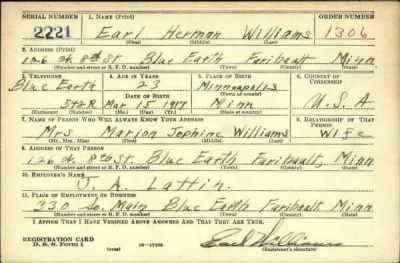 SERIAL NUMBER 1. NAME (Print) ORDER NUMBER
2221 Earl Herman Williams 1306
(First) (Middle) (Last)
2. ADDRESS (Print)
126 W. 8th St. Blue Earth Faribault Minn
(Number and street or R. F. D. number) (Town) (County) (State)
3. TELEPHONE 4. AGE IN YEARS 5. PLACE OF BIRTH 6. COUNTRY OF CITIZENSHIP
Blue Earth 23 Minneapolis
DATE OF BIRTH (Town or county)
512R Mar 15 1917 Minn U.S.A
(Exchange) (Number) (Mo.) (Day) (Yr.) (State or country)
7. NAME OF PERSON WHO WILL ALWAYS KNOW YOUR ADDRESS 8. RELATIONSHIP OF THAT PERSON
Mrs Marion Jophine Williams Wife
(Mr., Mrs., Miss) (First) (Middle) (Last)
9. ADDRESS OF THAT PERSON
126 W. 8th St. Blue Earth Faribault, Minn
(Number and street or R. F. D. number) (Town) (County) (State)
10. EMPLOYER'S NAME
J. A. Lattin.
11. PLACE OF EMPLOYMENT OR BUSINESS
330 So. Main Blue Earth Faribault Minn
(Number and street or R. F. D. number) (Town) (County) (State)
I AFFIRM THAT I HAVE VERIFIED ABOVE ANSWERS AND THAT THEY ARE TRUE.
REGISTRATION CARD
D. S. S. Form 1 16-17105 Earl Williams
(Registrant's signature)